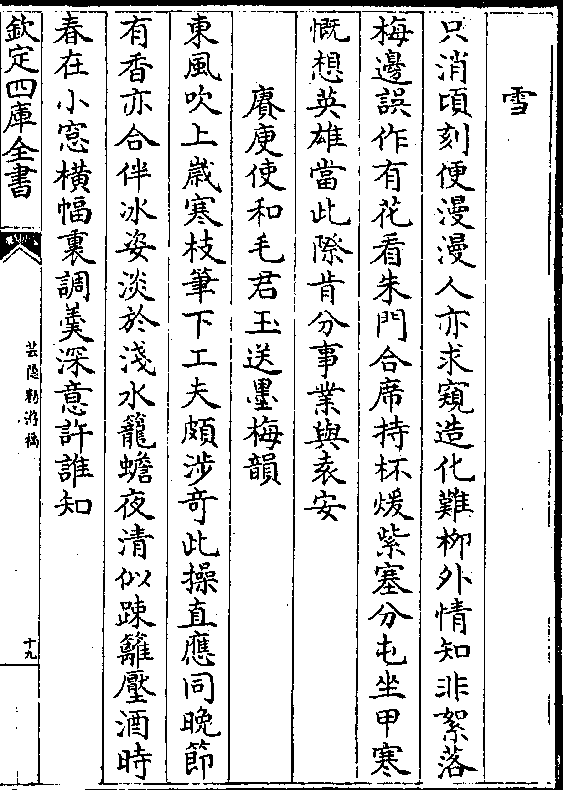 雪
只消頃刻便漫漫人亦求窺造化難柳外情知非絮落
梅邊誤作有花看朱門合席持杯煖紫塞分屯坐甲寒
慨想英雄當此際肯分事業與袁安
賡庾使和毛君玉送墨梅韻
東風吹上歲寒枝筆下工夫頗涉奇此操直應同晚節
有香亦合伴冰姿淡於淺水籠蟾夜清似踈籬壓酒時
春在小窓橫幅裏調羹深意許誰知
欽定四庫全書
芸隱勌游稿
十九